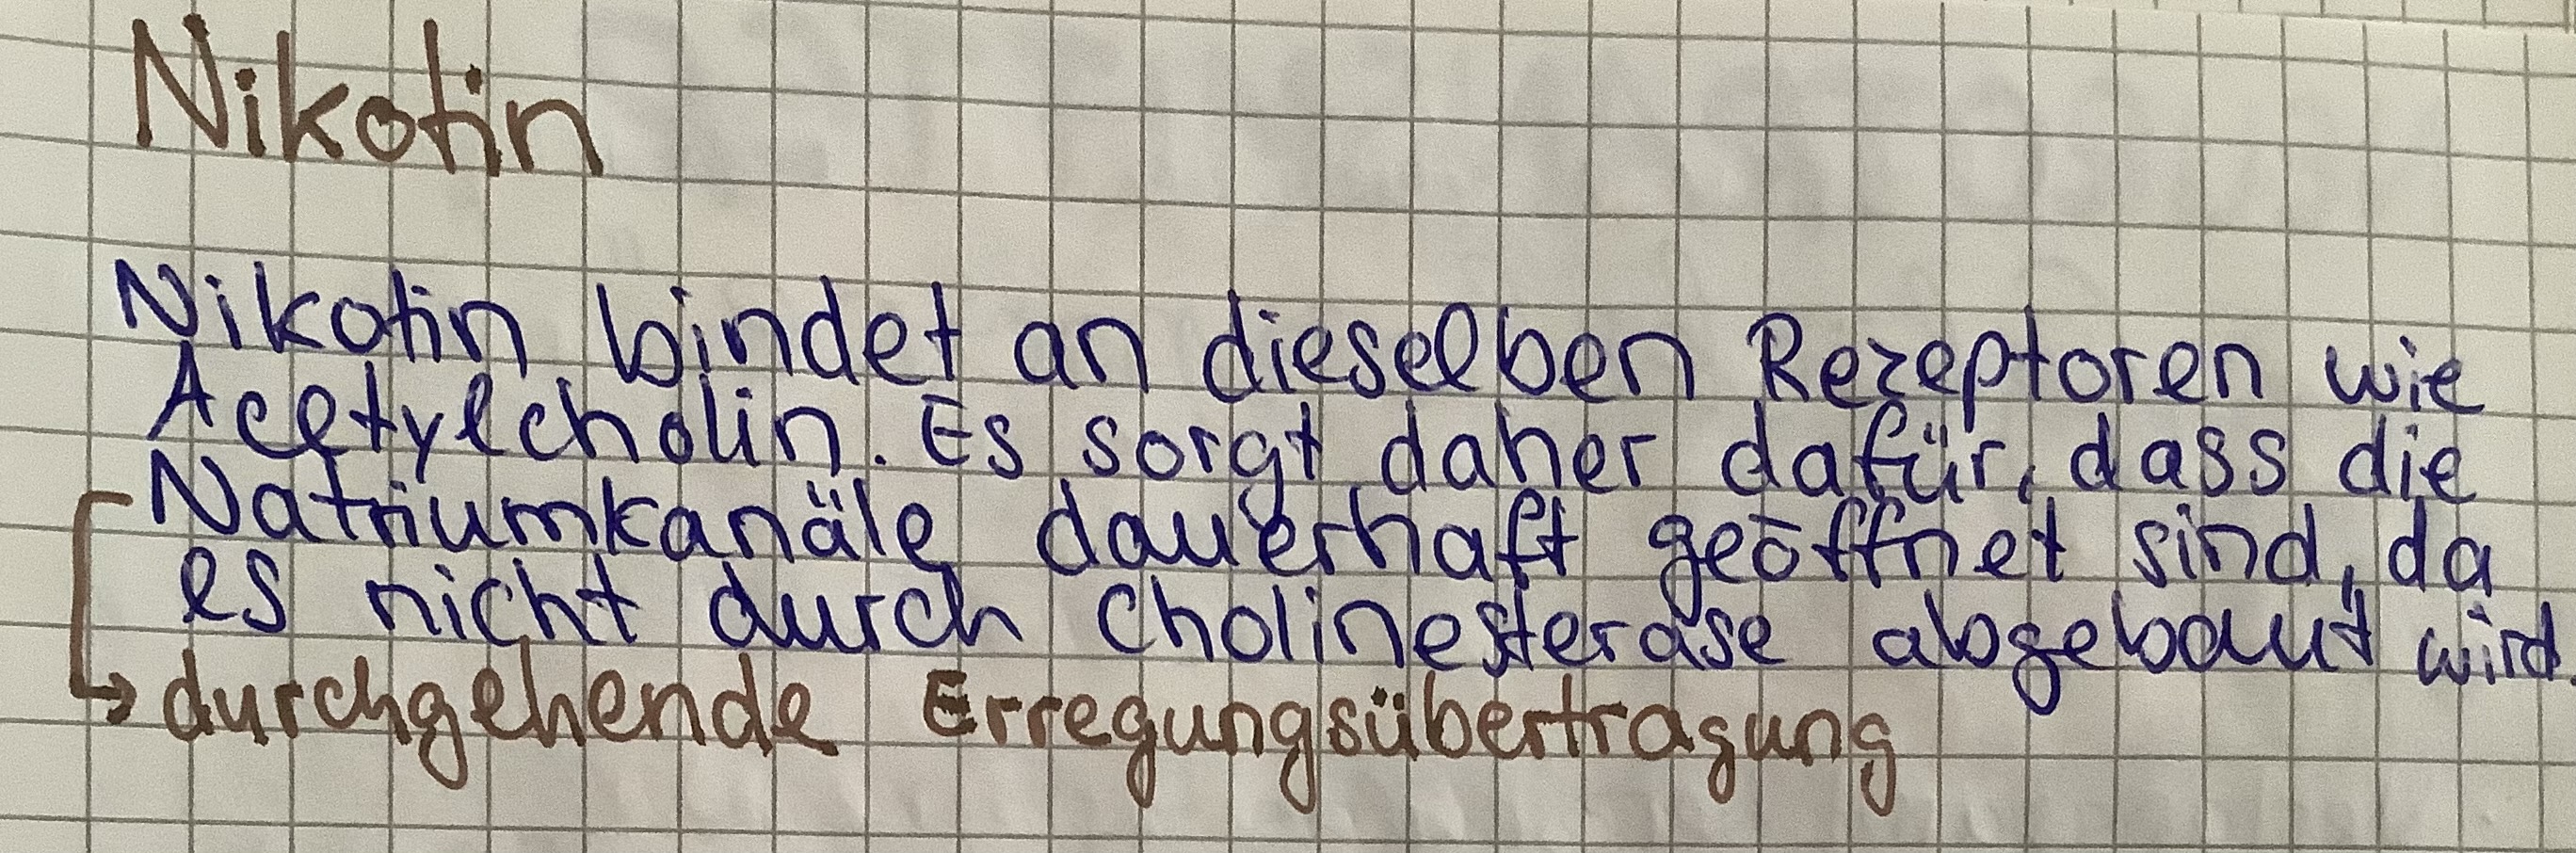 Nikotin
Nikotin bindet an dieselben Rezeptoren wie
Acetylcholin. Es sorgt daher dafür, dass die
Natriumkanäle dauerhaft geöffnet sind, da
es nicht durch Cholinesterase abgebaut wird.
→ durchgehende Erregungsübertragung